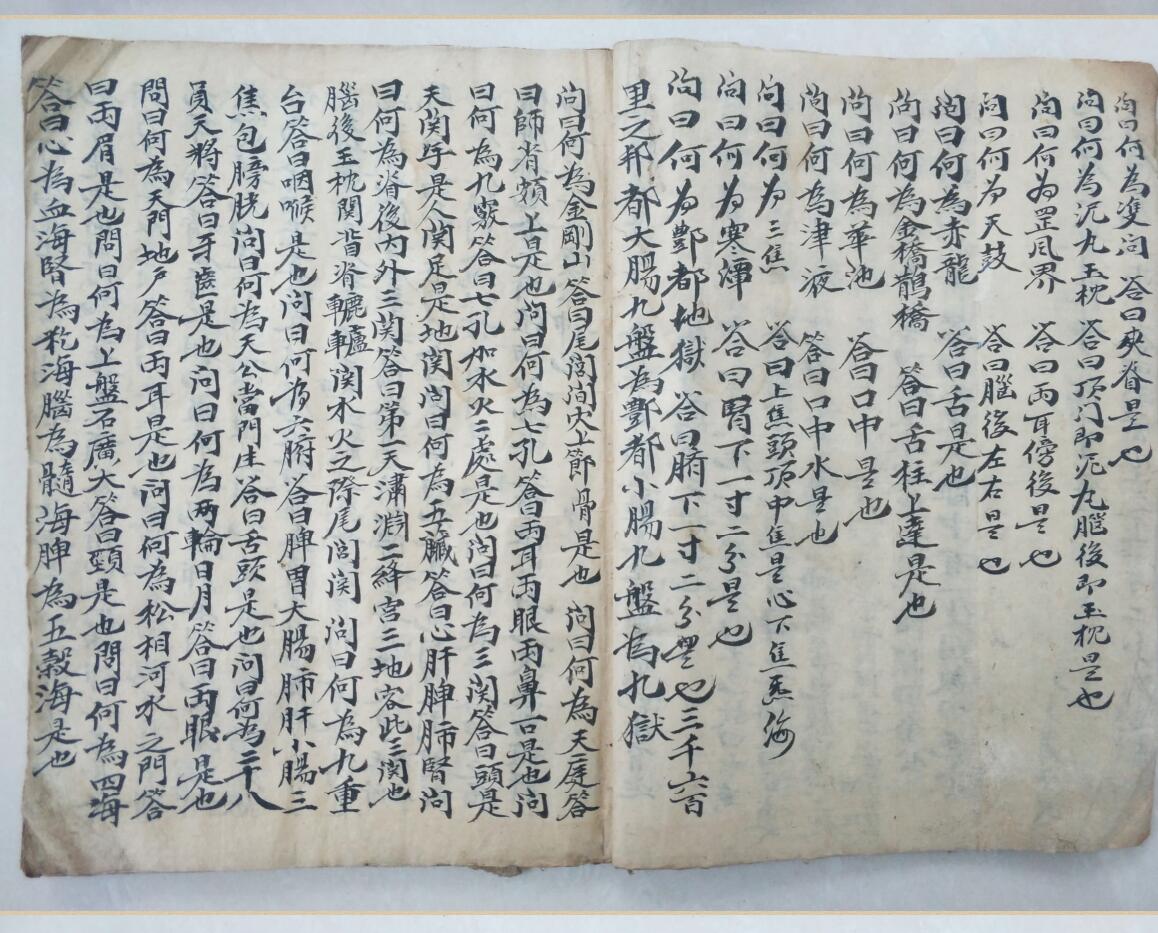 問曰何為雙問 答曰夾脊是也
問曰何為泥九玉枕 答曰頂门即泥九腦後即玉枕是也
問曰何為罡風界 答曰両耳傍後是也
問曰何为天鼓 答曰腦後左右是也
問曰何為赤龍 答曰舌是也
問曰何為金橋鵲橋 答曰舌柱上達是也
問曰何為華池 答曰口中是也
問曰何為津液 答曰口中水是也
問曰何为三焦 答曰上焦頭顶中焦是心下焦炁海
問曰何为寒 答曰腎下一寸二分是也
問曰何为酆都地獄 答曰腑下一寸二分是也三千六百
里之邦都大腸九盤為酆都小腸九盤為九獄
問曰何為金剛山 答曰尾閭間穴上節骨是也 問曰何為天庭答
曰師省頦上是也問曰何為七孔答曰両耳両眼両鼻一口是也問
曰何為九竅答曰七孔加水火二處是也問曰何為三関答曰頭是
天関手是人関足是地関 問曰何為五臟答曰心肝脾肺腎問
曰何為脊後內外三関答曰第一天潚渊二絳宮三地客此三関也
腦後玉枕関背脊轆轤関水火之際尾閭関 問曰何為九重
台答曰咽喉是也問曰何为六腑 答曰脾胃大腸肺肝小腸三
焦包膀胱問曰何為天公當門生答曰舌頭是也問曰何為二十八
員天將答曰牙齒是也問曰何為両輪日月答曰両眼是也
問曰何為天門地户答曰両耳是也問曰何為松相河水之門答
曰両眉是也問曰何為上盤石廣大答曰頸是也問曰何為四海
答曰心為血海腎為乾海腦為髓海脾為五穀海是也